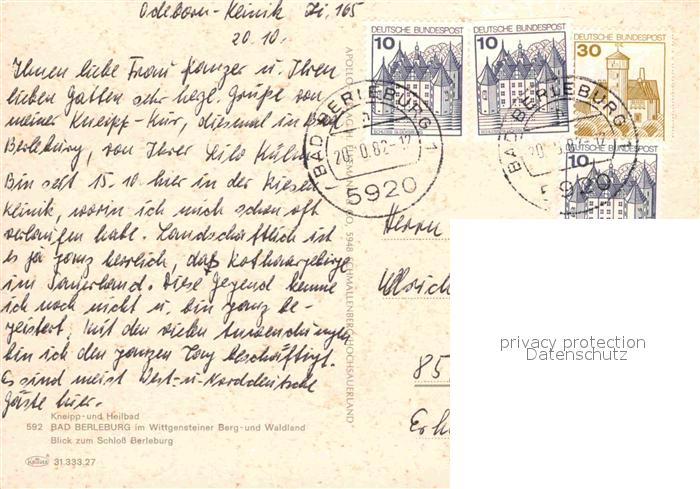 Odeborn-Klinik Zi. 165
20.10.
Ihnen liebe Frau Panzer u. Ihren
lieben Gatten sehr herzl. Grüße von
meiner Kneipp-Kur, diesmal in Bad
Berleburg, von Ihrer Lilo
Bin seit 15.10. hier in der Riesen
Klinik, worin ich mich schon oft
verlaufen habe. Landschaftlich ist
es ja ganz herrlich, das Rothaargebirge
im Sauerland. Diese Gegend kenne
ich noch nicht u. bin ganz be-
geistert. Mit den vielen Anwendungen
bin ich den ganzen Tag beschäftigt.
Es sind meist West-u-Norddeutsche
Gäste hier.
Kneipp-und Heilbad
592 BAD BERLEBURG im Wittgensteiner Berg-und Waldland
Blick zum Schloß Berleburg
31.333.27
5948 SCHMALLENBERG/HOCHSAUERLAND
DEUTSCHE BUNDESPOST
10
DEUTSCHE BUNDESPOST
10
DEUTSCHE BUNDESPOST
30
DEUTSCHE BUNDESPOST
10
BAD BERLEBURG 1
5920
BAD BERLEBURG 1
5920
Herrn
Ulrich
85
privacy protection
Datenschutz